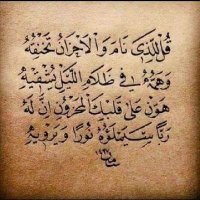 قُلْ لِلَّذِي نَامَ وَالْأَحْزَانُ تَخْنِقُهُ
وَهَمُّهُ فِي ظَلَامِ اللَّيْلِ يُشْقِيهِ
هَوِّنْ عَلَى قَلْبِكَ الْمَحْزُونِ إِنَّ لَهُ
رَبًّا سَيَمْلَؤُهُ نُورًا وَيَرْوِيهِ